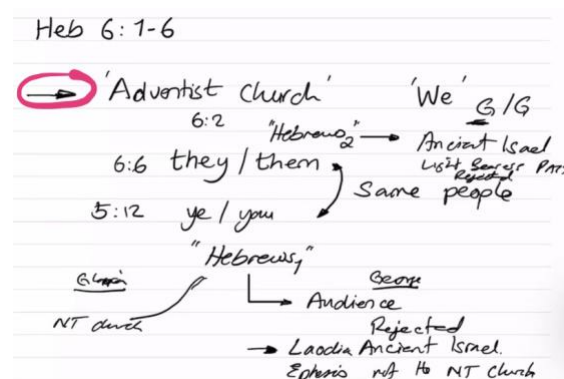 Heb 6:1-6
'Adventist Church' 'We' G/G
6:2 "Hebrews2" → Ancient Israel
Light Bearers
Rejected
6:6 they/them
Same people
5:12 ye/you
"Hebrews1"
George
→ Audience
NT church
Rejected
→ Laodicia Ancient Israel.
Ephesis not the NT Church